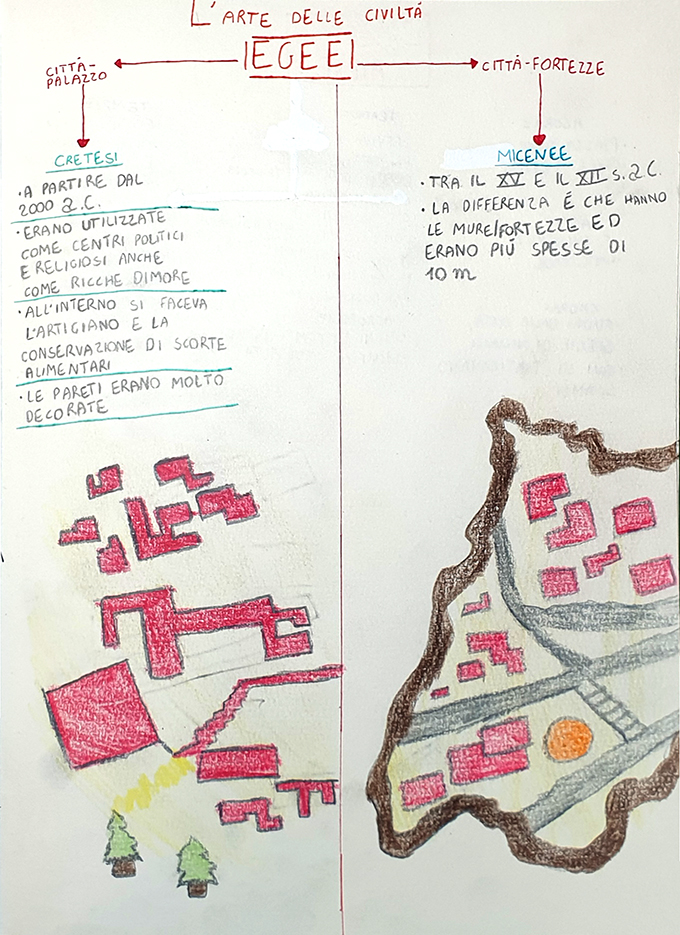 L'ARTE DELLE CIVILTÁ
EGEE
CITTÁ-
PALAZZO
CITTÀ-FORTEZZE
CRETESI
• A PARTIRE DAL
2000 a.C.
• ERANO UTILIZZATE
COME CENTRI POLITICI
E RELIGIOSI ANCHE
COME RICCHE DIMORE
• ALL'INTERNO SI FACEVA
L'ARTIGIANO E LA
CONSERVAZIONE DI SCORTE
ALIMENTARI
• LE PARETI ERANO MOLTO
DECORATE
MICENEE
• TRA IL XV E IL XII s. a.C.
• LA DIFFERENZA É CHE HANNO
LE MURE/FORTEZZE ED
ERANO PIÚ SPESSE DI
10 m